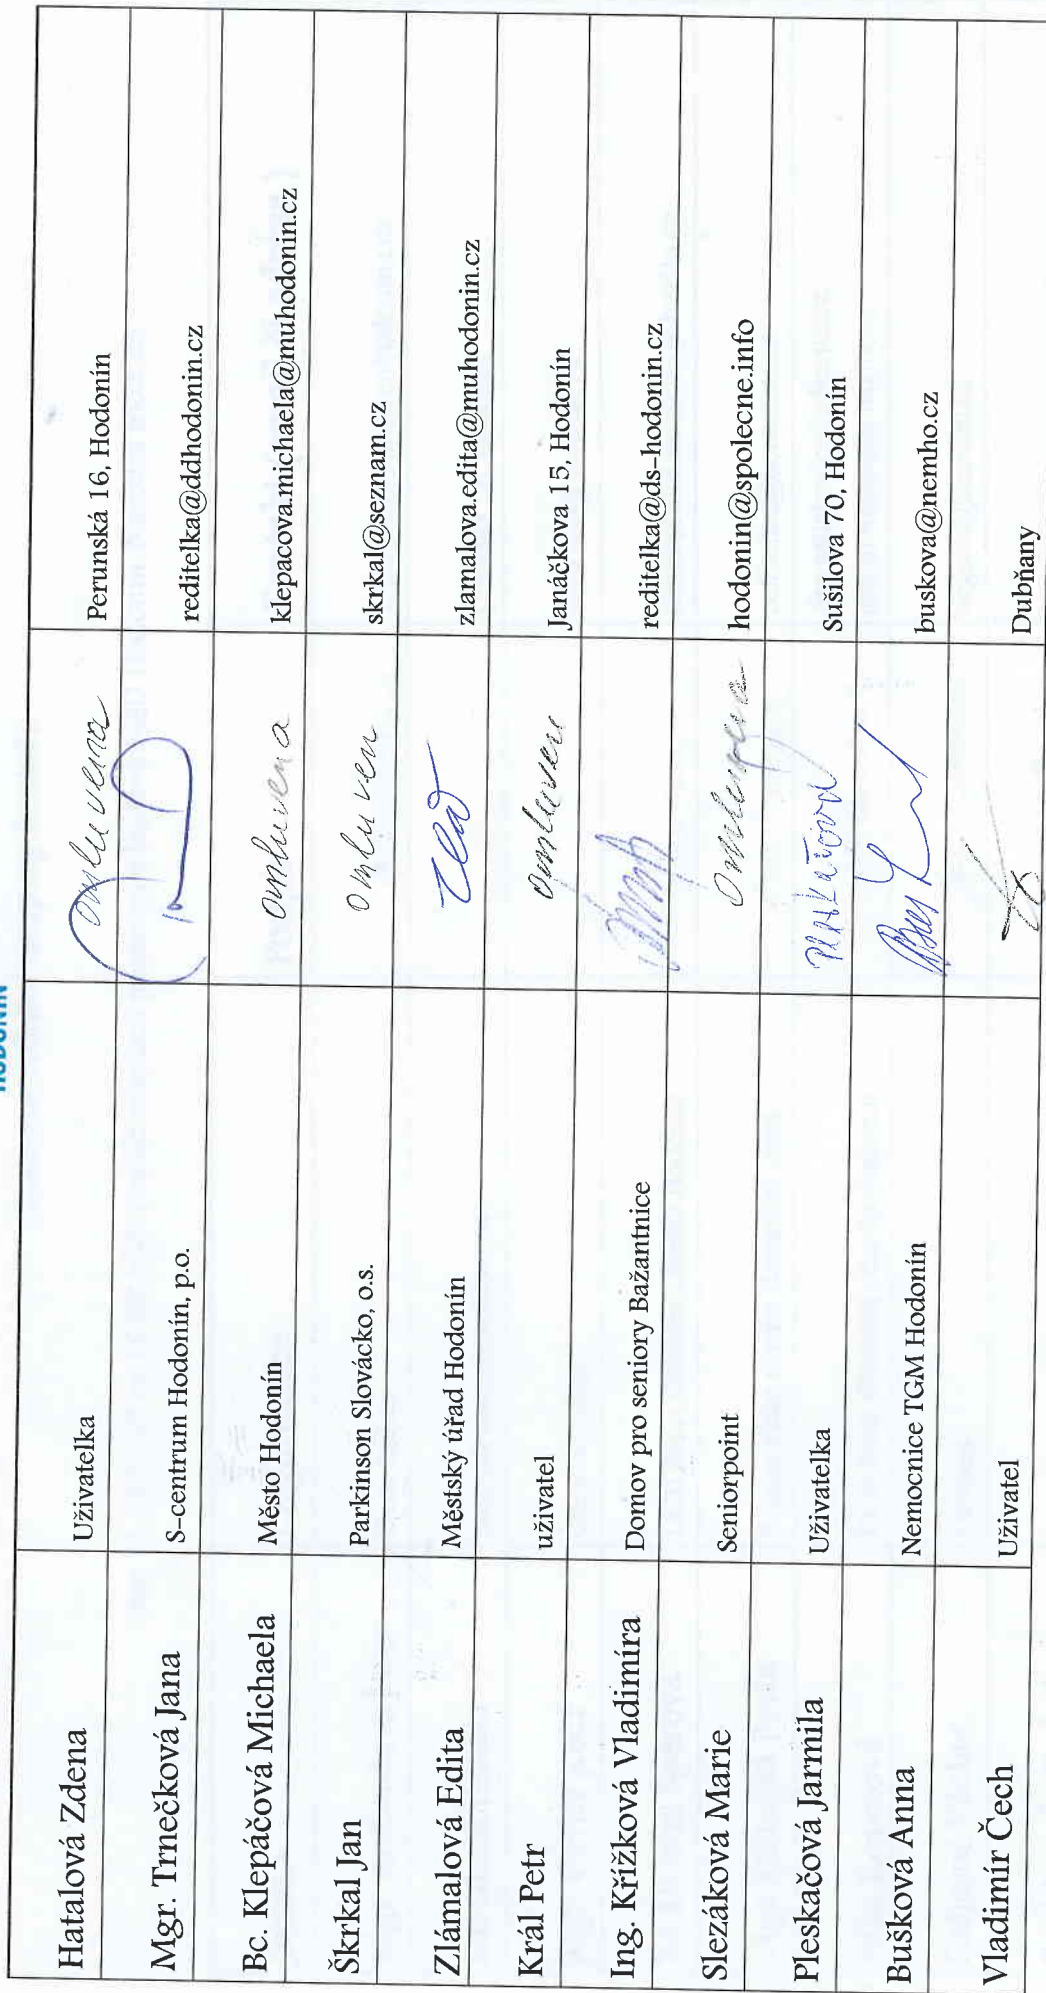 HODONÍN
Hatalová Zdena Uživatelka omluvena Perunská 16, Hodonín
Mgr. Trnečková Jana S-centrum Hodonín, p.o. reditelka@ddhodonin.cz
Bc. Klepáčová Michaela Město Hodonín omluvena klepacova.michaela@muhodonin.cz
Škrkal Jan Parkinson Slovácko, o.s. omluven skrkal@seznam.cz
Zlámalová Edita Městský úřad Hodonín zlamalova.edita@muhodonin.cz
Král Petr uživatel omluven Janáčkova 15, Hodonín
Ing. Křížková Vladimíra Domov pro seniory Bažantnice reditelka@ds-hodonin.cz
Slezáková Marie Seniorpoint omluvena hodonin@spolecne.info
Pleskačová Jarmila Uživatelka Pleskačová Sušilova 70, Hodonín
Bušková Anna Nemocnice TGM Hodonín buskova@nemho.cz
Vladimír Čech Uživatel Dubňany